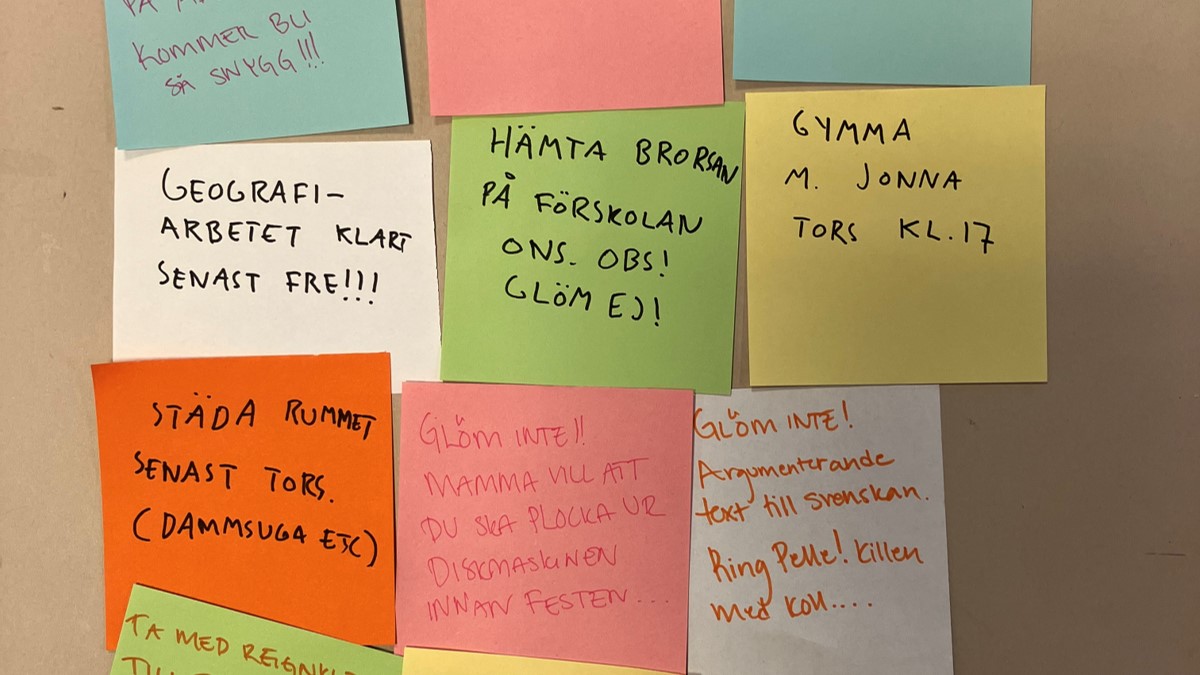 KOMMER BLI
SÅ SNYGG!!!
GEOGRAFI-
ARBETET KLART
SENAST FRE!!!
HÄMTA BRORSAN
PÅ FÖRSKOLAN
ONS. OBS!
GLÖM EJ!
GYMMA
M. JONNA
TORS KL.17
STÄDA RUMMET
SENAST TORS.
(DAMMSUGA ETC)
GLÖM INTE!!
MAMMA VILL ATT
DU SKA PLOCKA UR
DISKMASKINEN
INNAN FESTEN...
GLÖM INTE!
Argumenterande
text till svenskan.
Ring Pelle! Killen
med koll....
TA MED